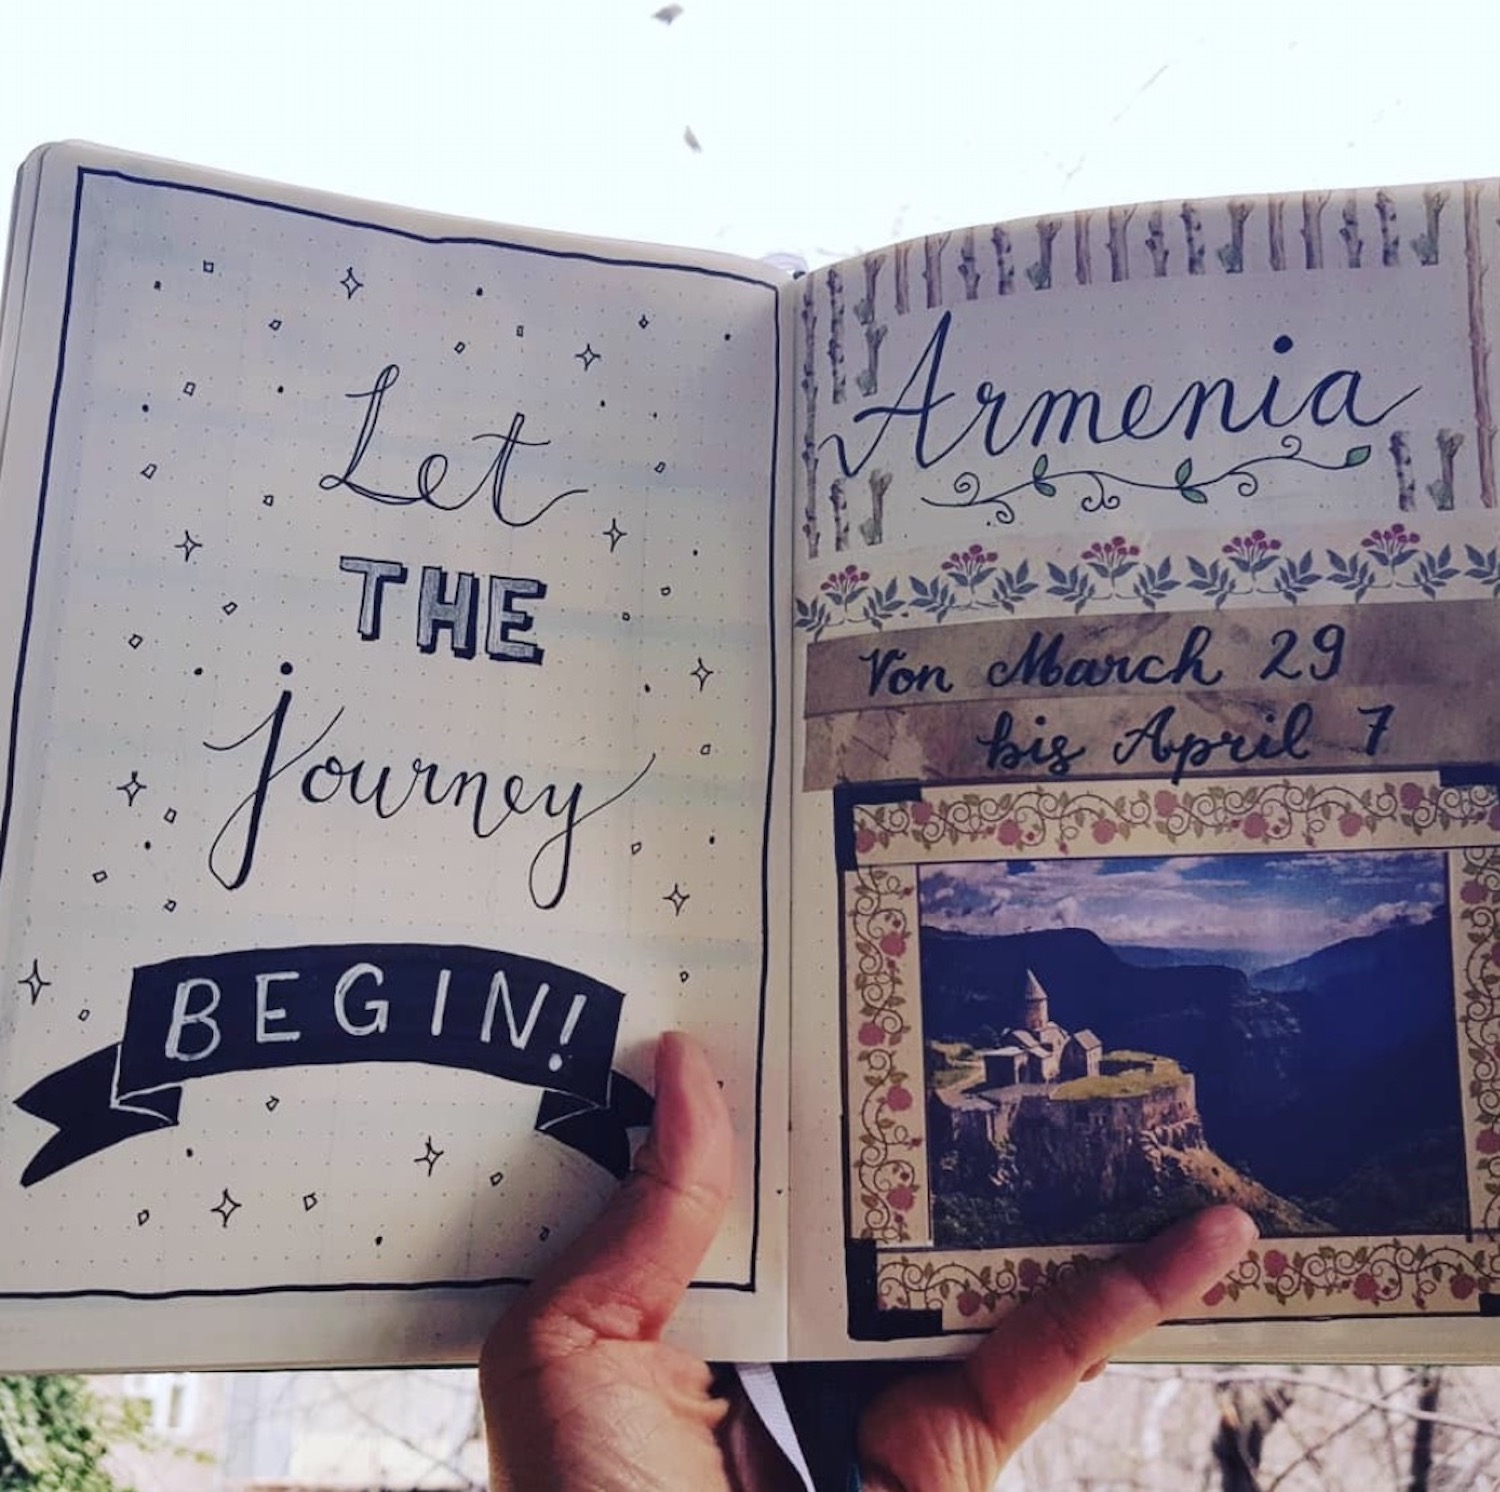 Let
THE
journey
BEGIN!
Armenia
Von March 29
bis April 7